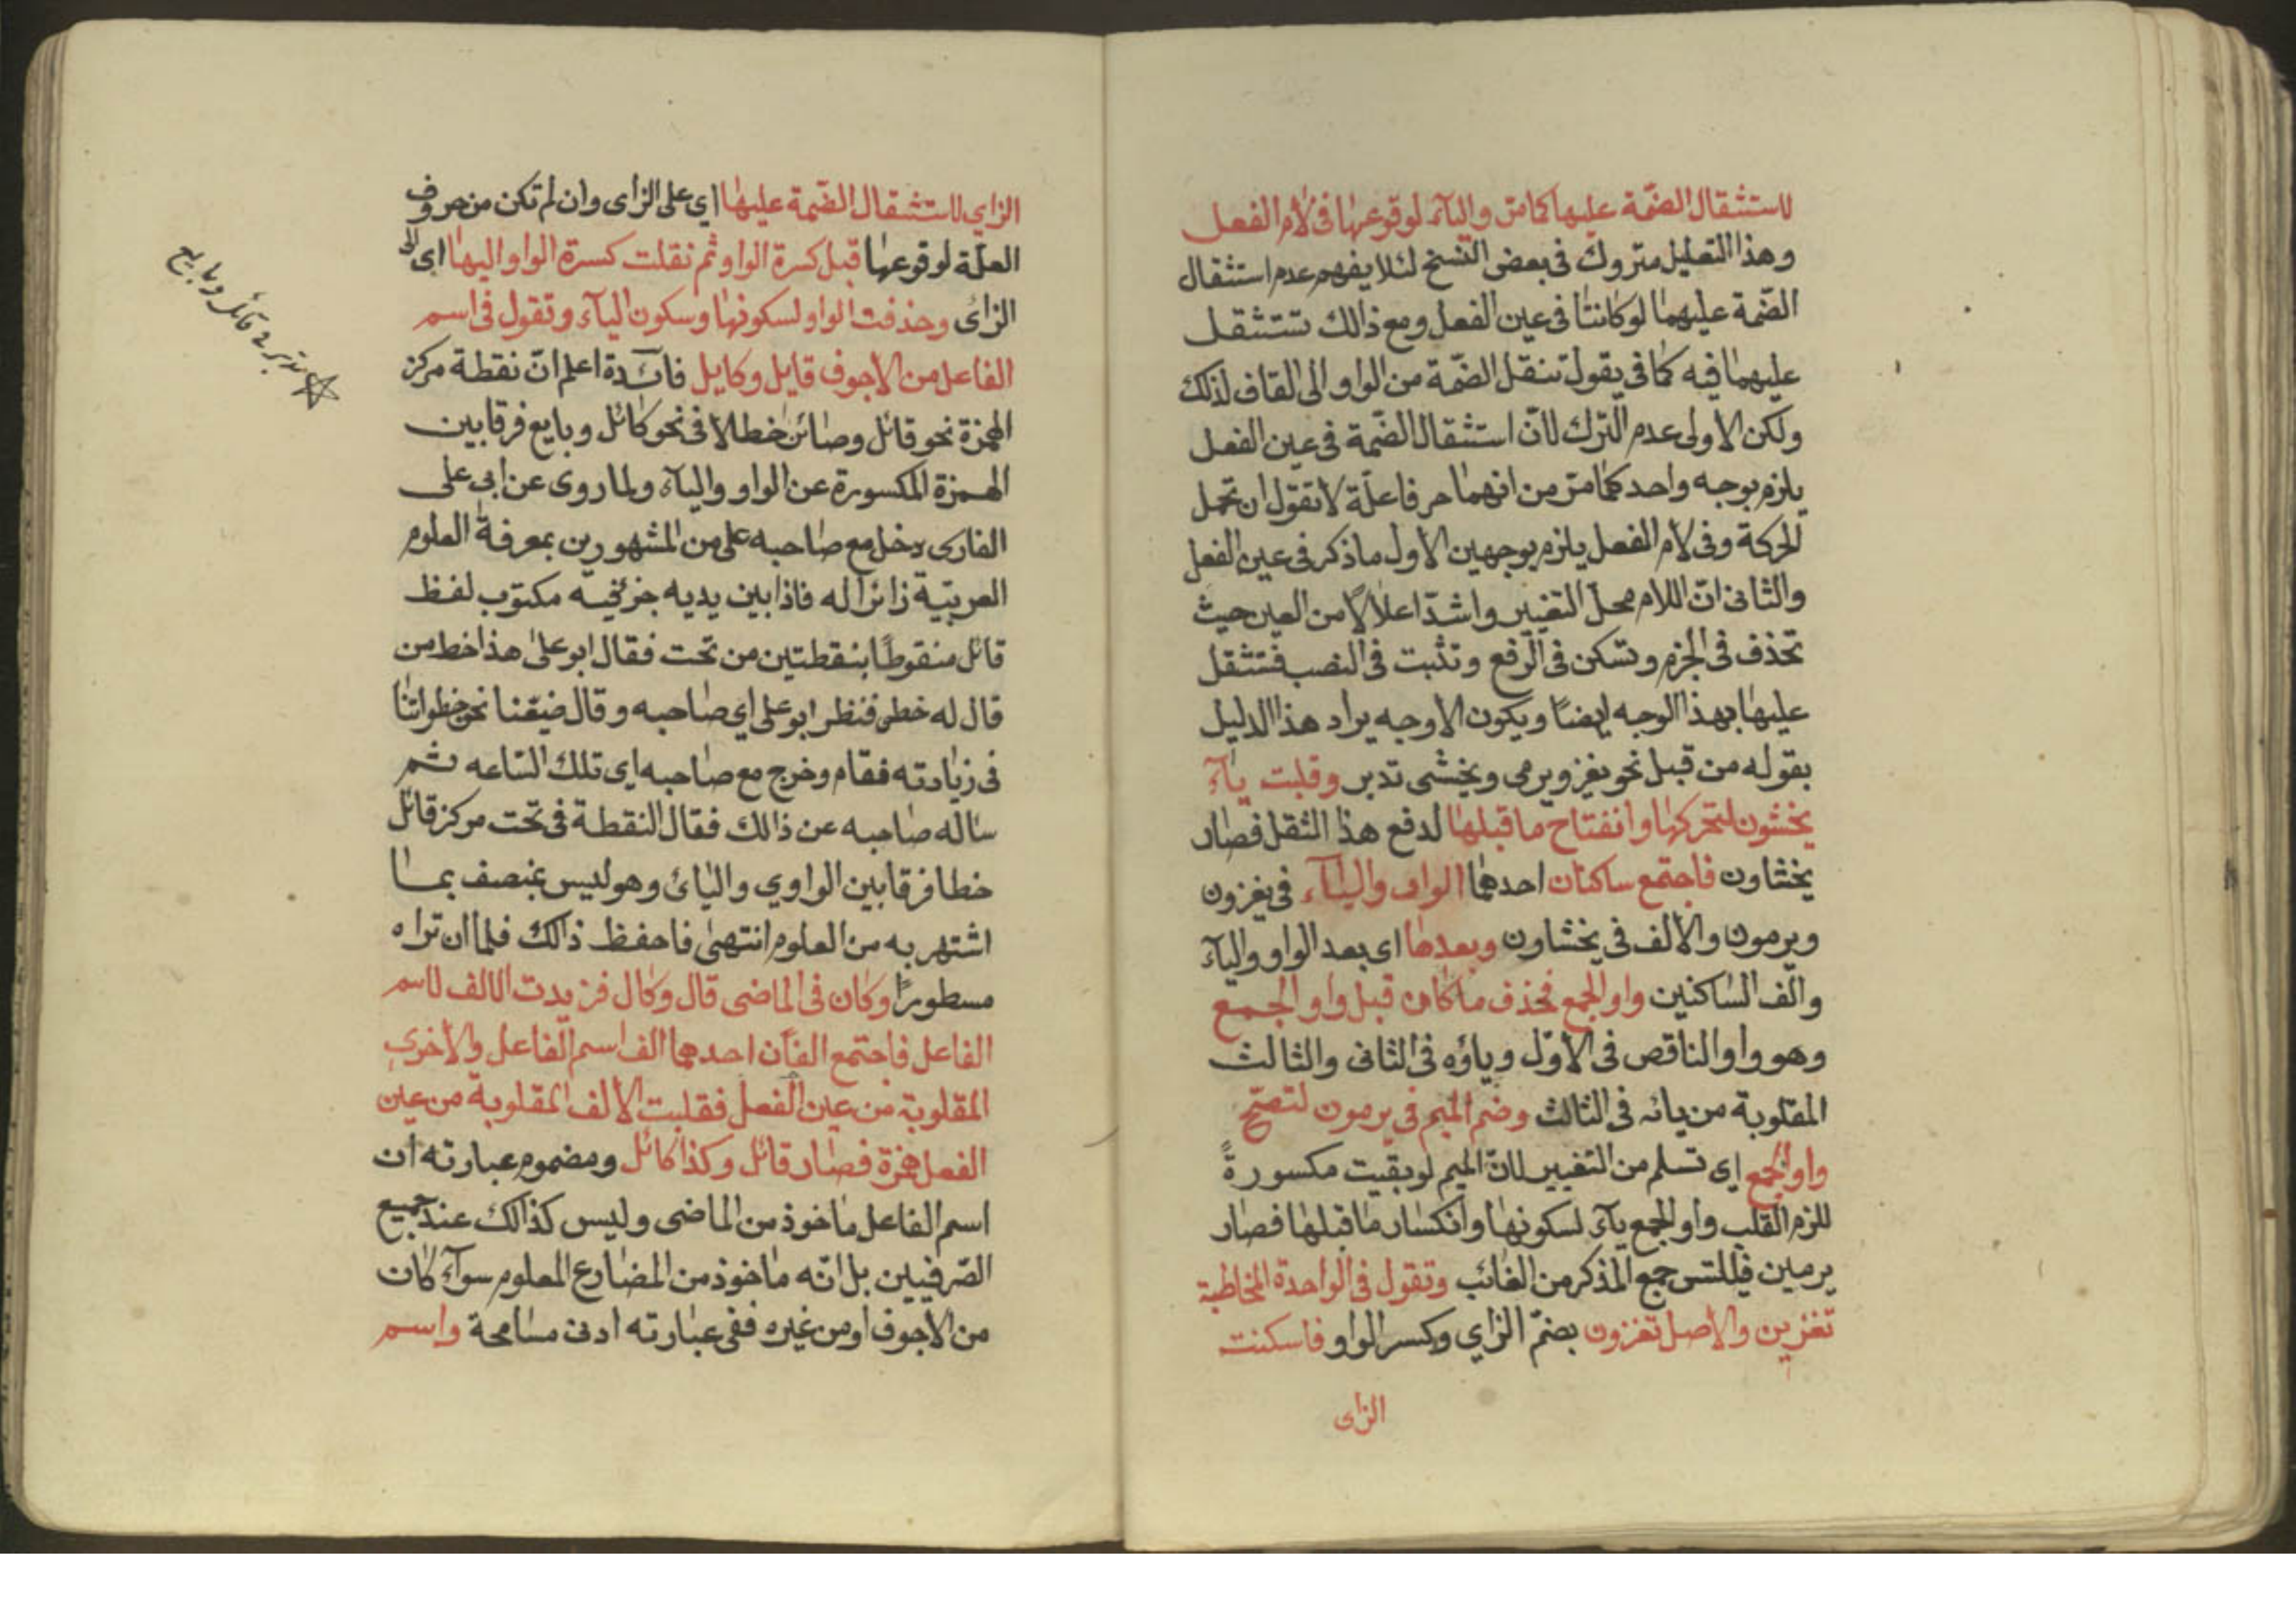 لاستثقال الضمّة عليها كما مرّ والياء لوقوعها فى لام الفعل
وهذا التعليل متروك فى بعض النسخ لئلا يفهم عدم استثقال
الضّمة عليهما لو كانتا فى عين الفعل ومع ذالك تستثقل
عليهما فيه كما فى يقول تنقل الضمّة من الواو الى القاف لذلك
ولكن الاولى عدم الترك لانّ استثقال الضّمة فى عين الفعل
يلزم بوجه واحد كما مرّ من انهما حرفا علّة لا تقول ان تحمل
الحركة وفى لام الفعل يلزم بوجهين الاول ما ذكر فى عين الفعل
والثانى انّ اللام محلّ التغيير واشدّ اعلالًا من العين حيث
تحذف فى الجزم وتسكن فى الرفع وتثبت فى النصب فتثقل
عليها بهذا الوجه ايضًا ويكون الاوجه يراد هذا الدليل
بقوله من قبل نحو يغزو ويرمى ويخشى تدبر وقلبت ياء
يخشون لتحركها وانفتاح ما قبلها لدفع هذا الثقل فصار
يخشاون فاجتمع ساكنان احدهما الواو والياء فى يغزون
ويرمون والالف فى يخشاون وبعدها اى بعد الواو والياء
والف الساكنين واو الجمع فحذف ما كان قبل واو الجمع
وهو واو الناقص فى الاوّل وياؤه فى الثانى والثالث
المقلوبة من يائه فى الثالث وضم الميم فى يرمون لتصحّ
واو الجمع اى تسلم من التغيير لانّ الميم لو بقيت مكسورةً
للزم القلب واو الجمع ياء لسكونها وانكسار ما قبلها فصار
يرمين فيلتس جمع المذكر من الغائب وتقول فى الواحدة المخاطبة
تغزين والاصل تغزون بضمّ الزاي وكسر الواو فاسكنت
الزاى
الزاي لاستثقال الضّمة عليها اي على الزاى وان لم تكن من حروف
العلّة لوقوعها قبل كسرة الواو ثم نقلت كسرة الواو اليها اى الى
الزاى وحذفت الواو لسكونها وسكون الياء وتقول فى اسم
الفاعل من الاجوف قايل وكايل فائدة اعلم انّ نقطة مركز
الهمزة نحو قائل وصائن خطا لا فى نحو كائل وبايع فرقا بين
الهمزة المكسورة عن الواو والياء ولما روى عن ابى على
الفارى دخل مع صاحبه على من المشهورين بمعرفة العلوم
العربيّة زائرا له فاذا بين يديه جزء فيه مكتوب لفظ
قائل منقوطًا بنقطتين من تحت فقال ابو على هذا خط من
قال له خطى فنظر ابو على اي صاحبه وقال ضيّعنا نحو خطواتنا
فى زيادته فقام وخرج مع صاحبه اى تلك الساعه ثم
ساله صاحبه عن ذالك فقال النقطة فى تحت مركز قائل
خطا فرقا بين الواوي واليائ وهو ليس بمنصف بما
اشتهر به من العلوم انتهى فاحفظ ذالك فلما ان تراه
مسطورًا وكان فى الماضى قال وكال فزيدت الالف لاسم
الفاعل فاجتمع الفان احدهما الف اسم الفاعل والاخرى
المقلوبة من عين الفعل فقلبت الالف المقلوبة من عين
الفعل همزة فصار قائل وكذا كائل ومضموم عبارته ان
اسم الفاعل ماخوذ من الماضى وليس كذالك عند جميع
الصّرفيين بل انّه ماخوذ من المضارع المعلوم سواء كان
من الاجوف او من غيره ففى عبارته ادنى مسامحة واسم